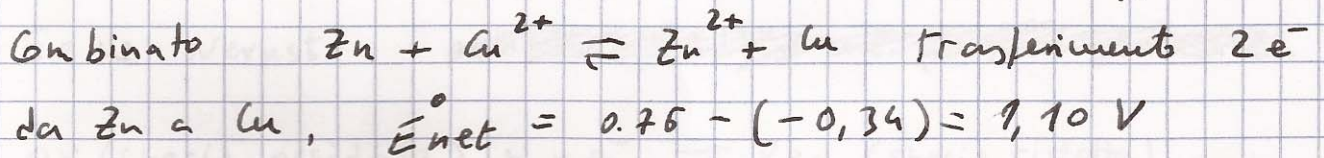 Combinato Zn + Cu²⁺ ⇌ Zn²⁺ + Cu trasferimento 2 e⁻
da Zn a Cu, E°net = 0.76 - (-0,34) = 1,10 V